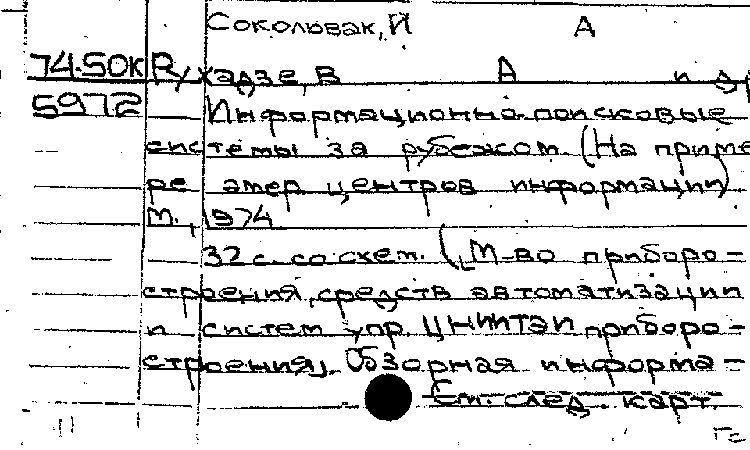 Сокольвак, И А
74.50К Рухадзе, В А и др
5972 Информационно-поисковые
системы за рубежом. (На приме
ре амер центров информации)
М., 1974
32 с. со схем. (М-во приборо-
строения, средств автоматизации
и систем упр. ЦНИИТЭИ приборо-
строения). Обзорная информа-
См. след. карт.